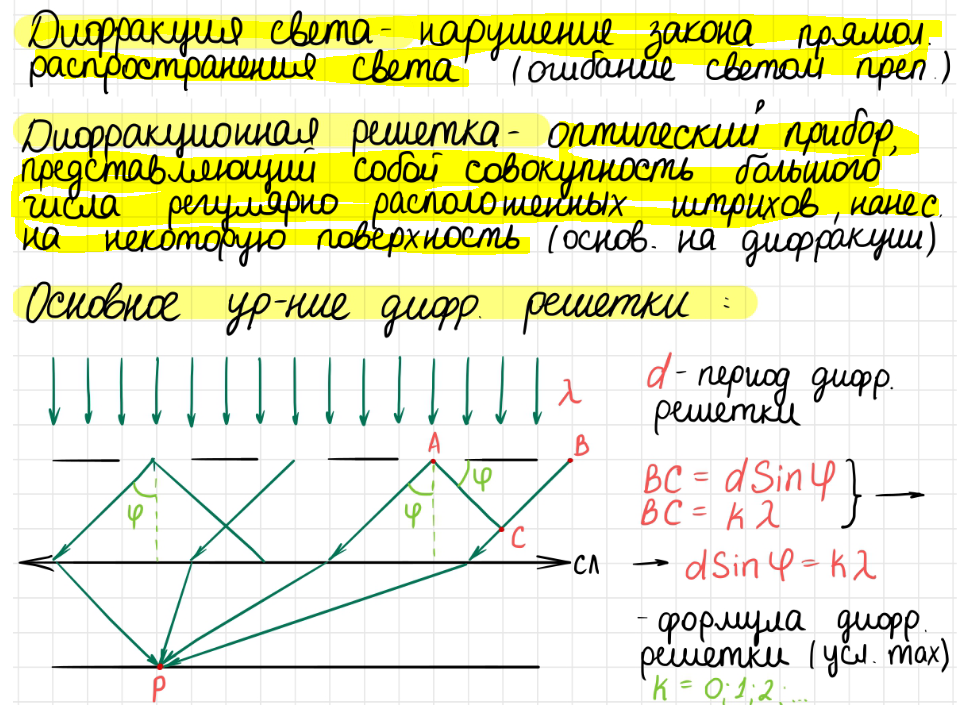 Дифракция света - нарушение закона прямол.
распространения света (огибание светом преп.)
Дифракционная решетка - оптический прибор,
представляющий собой совокупность большого
числа регулярно расположенных штрихов, нанес.
на некоторую поверхность (основ. на дифракции)
Основное ур-ние дифр. решетки :
λ
d - период дифр.
решетки
A
B
φ
φ
φ
C
BC = d Sin φ
BC = k λ
СЛ
d Sin φ = k λ
- формула дифр.
решетки (усл. max)
k = 0; 1; 2; ...
P